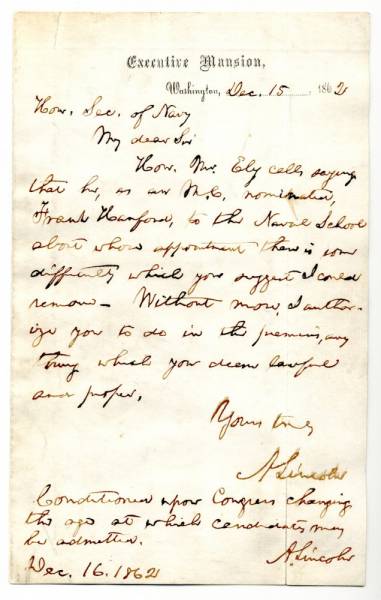 Executive Mansion,
Washington, Dec. 15, 1862
Hon. Sec. of Navy
My dear Sir
Hon. Mr. Ely calls saying
that he, as an M.C. nominated,
Frank Hanford, to the Naval School
about whose appointment there is some
difficulty which you suggest I could
remove— Without more, I author-
ize you to do in the premises, any
thing which you deem lawful
and proper.
Yours truly
A. Lincoln
Conditioned upon Congress changing
the age at which candidates may
be admitted.
A. Lincoln
Dec. 16. 1862